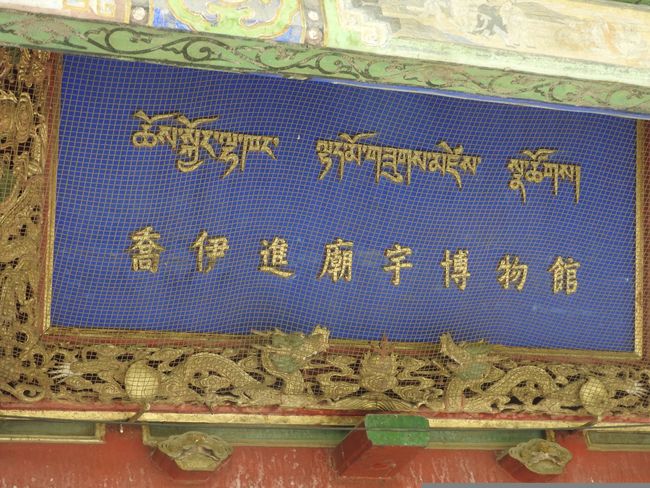 ཆོས་སྐྱོང་ལྷ་ཁང་ ལྟད་མོ་གཟུགས་མཛེས་ སྣ་ཚོགས།
喬伊進廟宇博物館